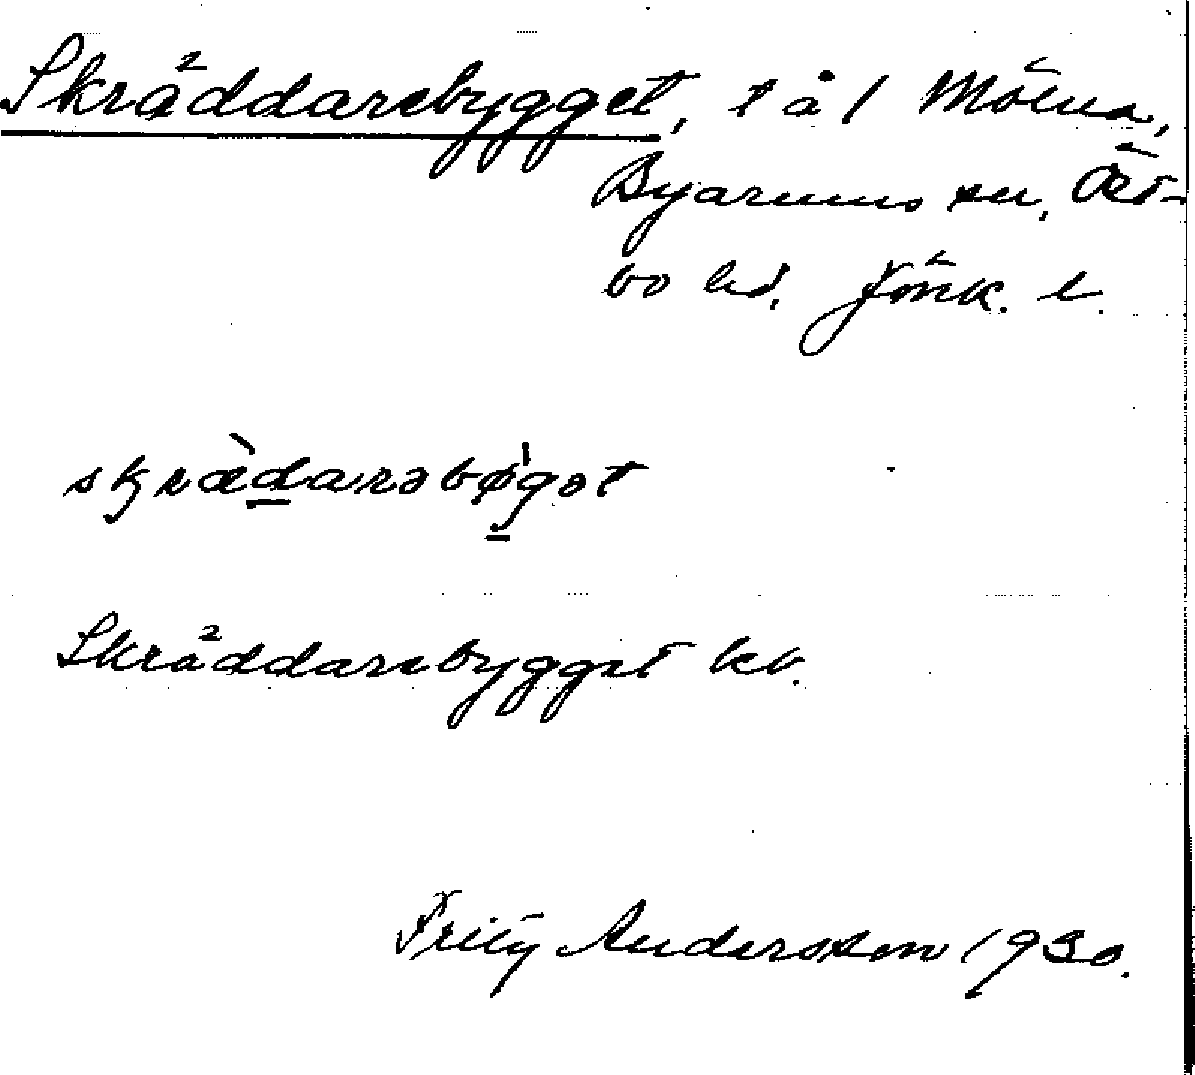 Skräddarebygget, t å / Mölna,
Byarums sn, Öst-
bo hd. Jönk. l.
skræ̀darəbø̀gət
Skräddarebygget kb.
Fritz Andersson 1930.